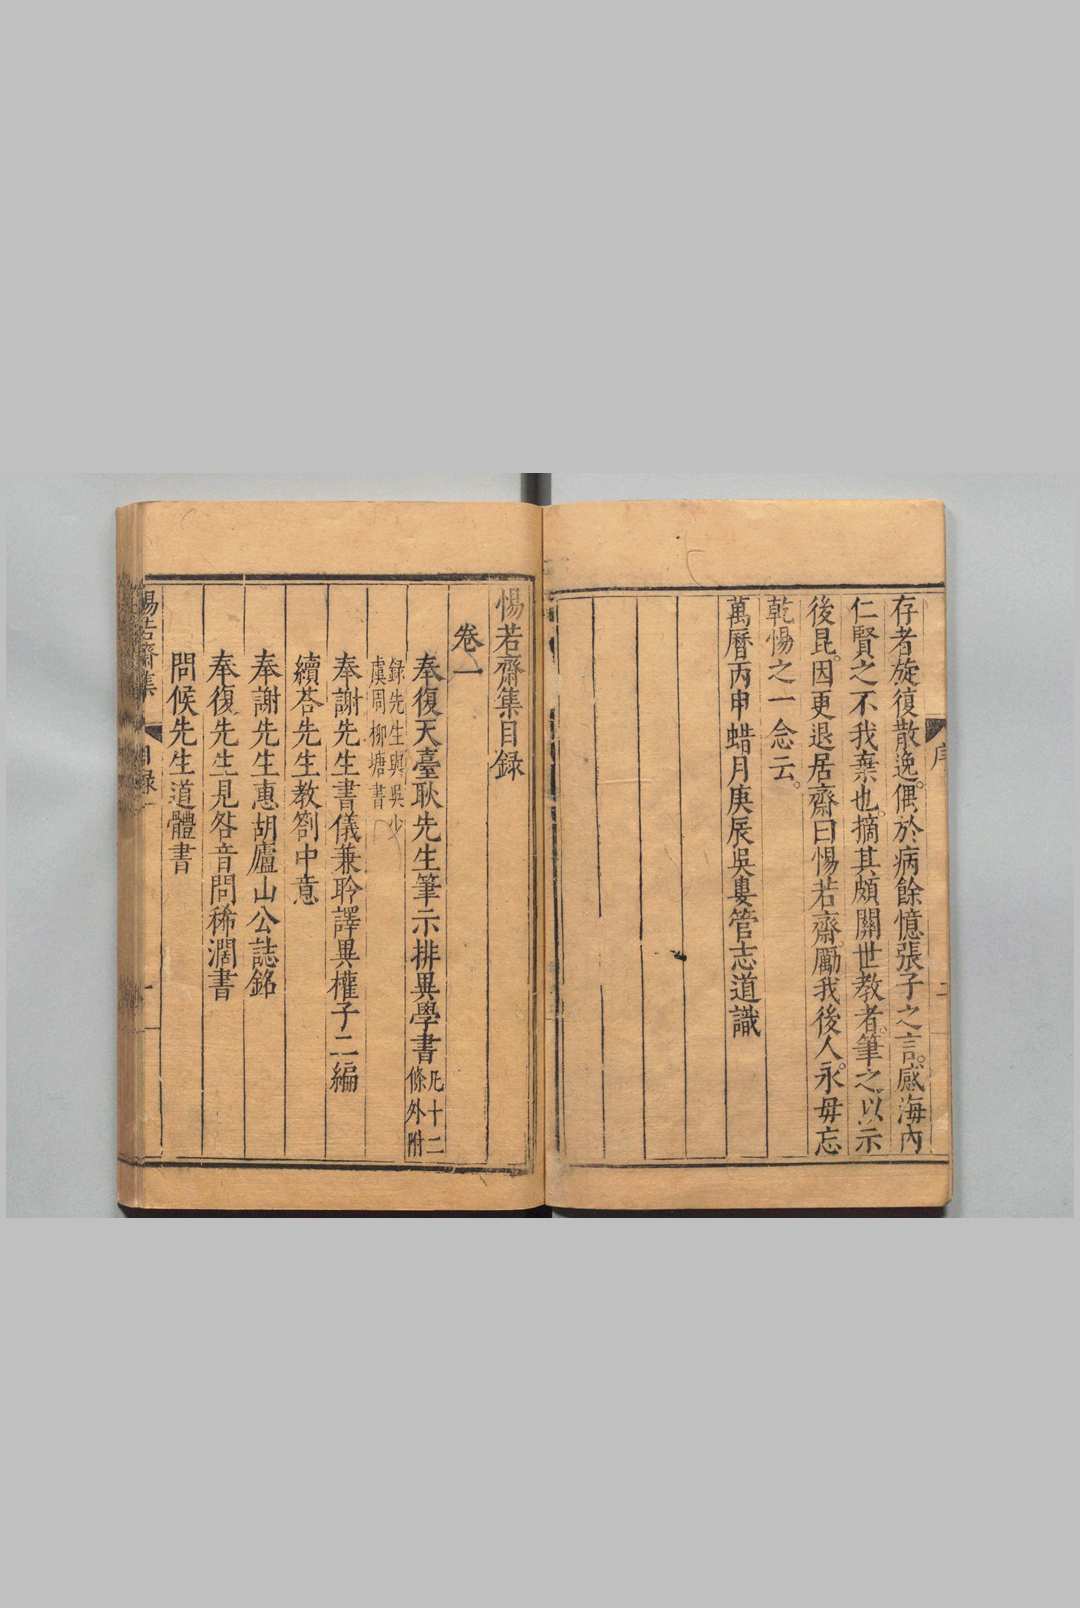 存者旋復散逸。偶於病餘憶張子之言。感海內
仁賢之不我棄也。摘其頗關世教者。筆之以示
後昆。因更退居齋曰惕若齋。勵我後人。永毋忘
乾惕之一念云。
萬曆丙申蜡月庚辰吳婁管志道識
序
二
惕若齋集目録
卷一
奉復天臺耿先生筆示排異學書凡十二條外附
録先生與吳少虞周柳塘書
奉謝先生書儀兼聆譯異權子二編
續荅先生教劄中意
奉謝先生惠胡廬山公誌銘
奉復先生見咎音問稀濶書
問候先生道體書
惕若齋集
目録
一